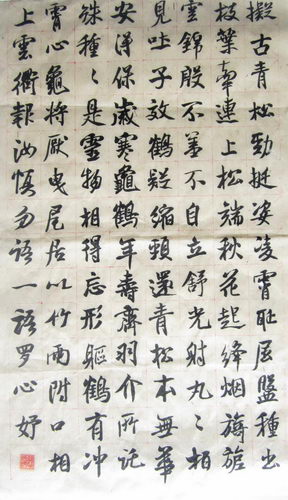 擬古青松勁挺姿凌霄耻屈盤種出
枝葉牽連上松端秋花起絳烟旖旎
雲錦殷不羞不自立舒光射丸丸柏
見吐子效鶴疑縮頸還青松本無華
安得保歲寒龜鶴年壽齊羽介所託
殊種種是靈物相得忘形軀鶴有冲
霄心龜將厭曳尾居以竹兩附口相
上雲衢報汝慎勿語一語罗心妤